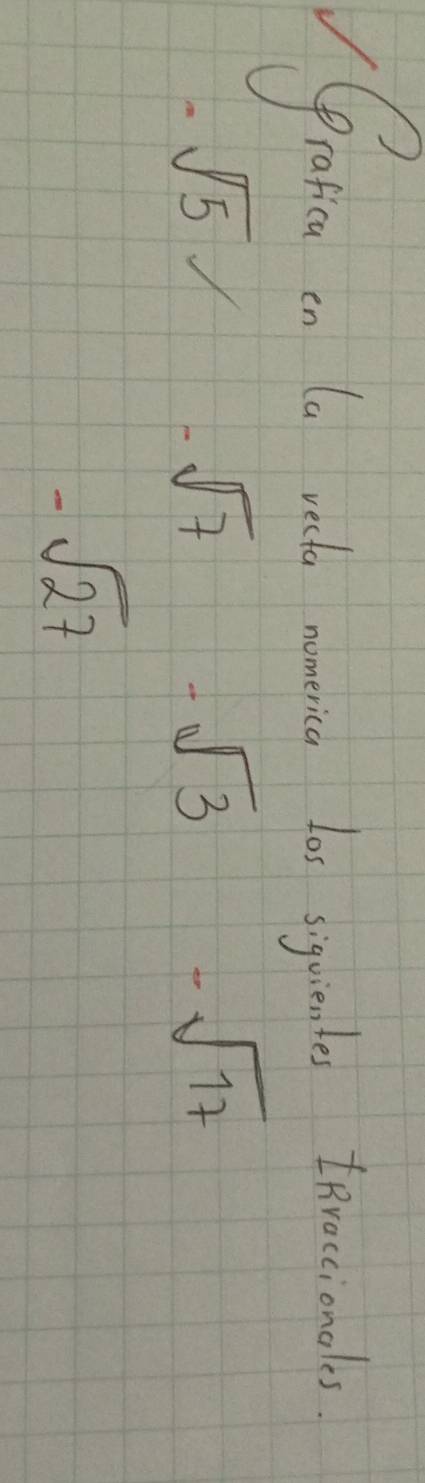 ✓ Grafica en la recta numerica los siguientes IRraccionales.
- √5 ✓ - √7 - √3 - √17
- √27